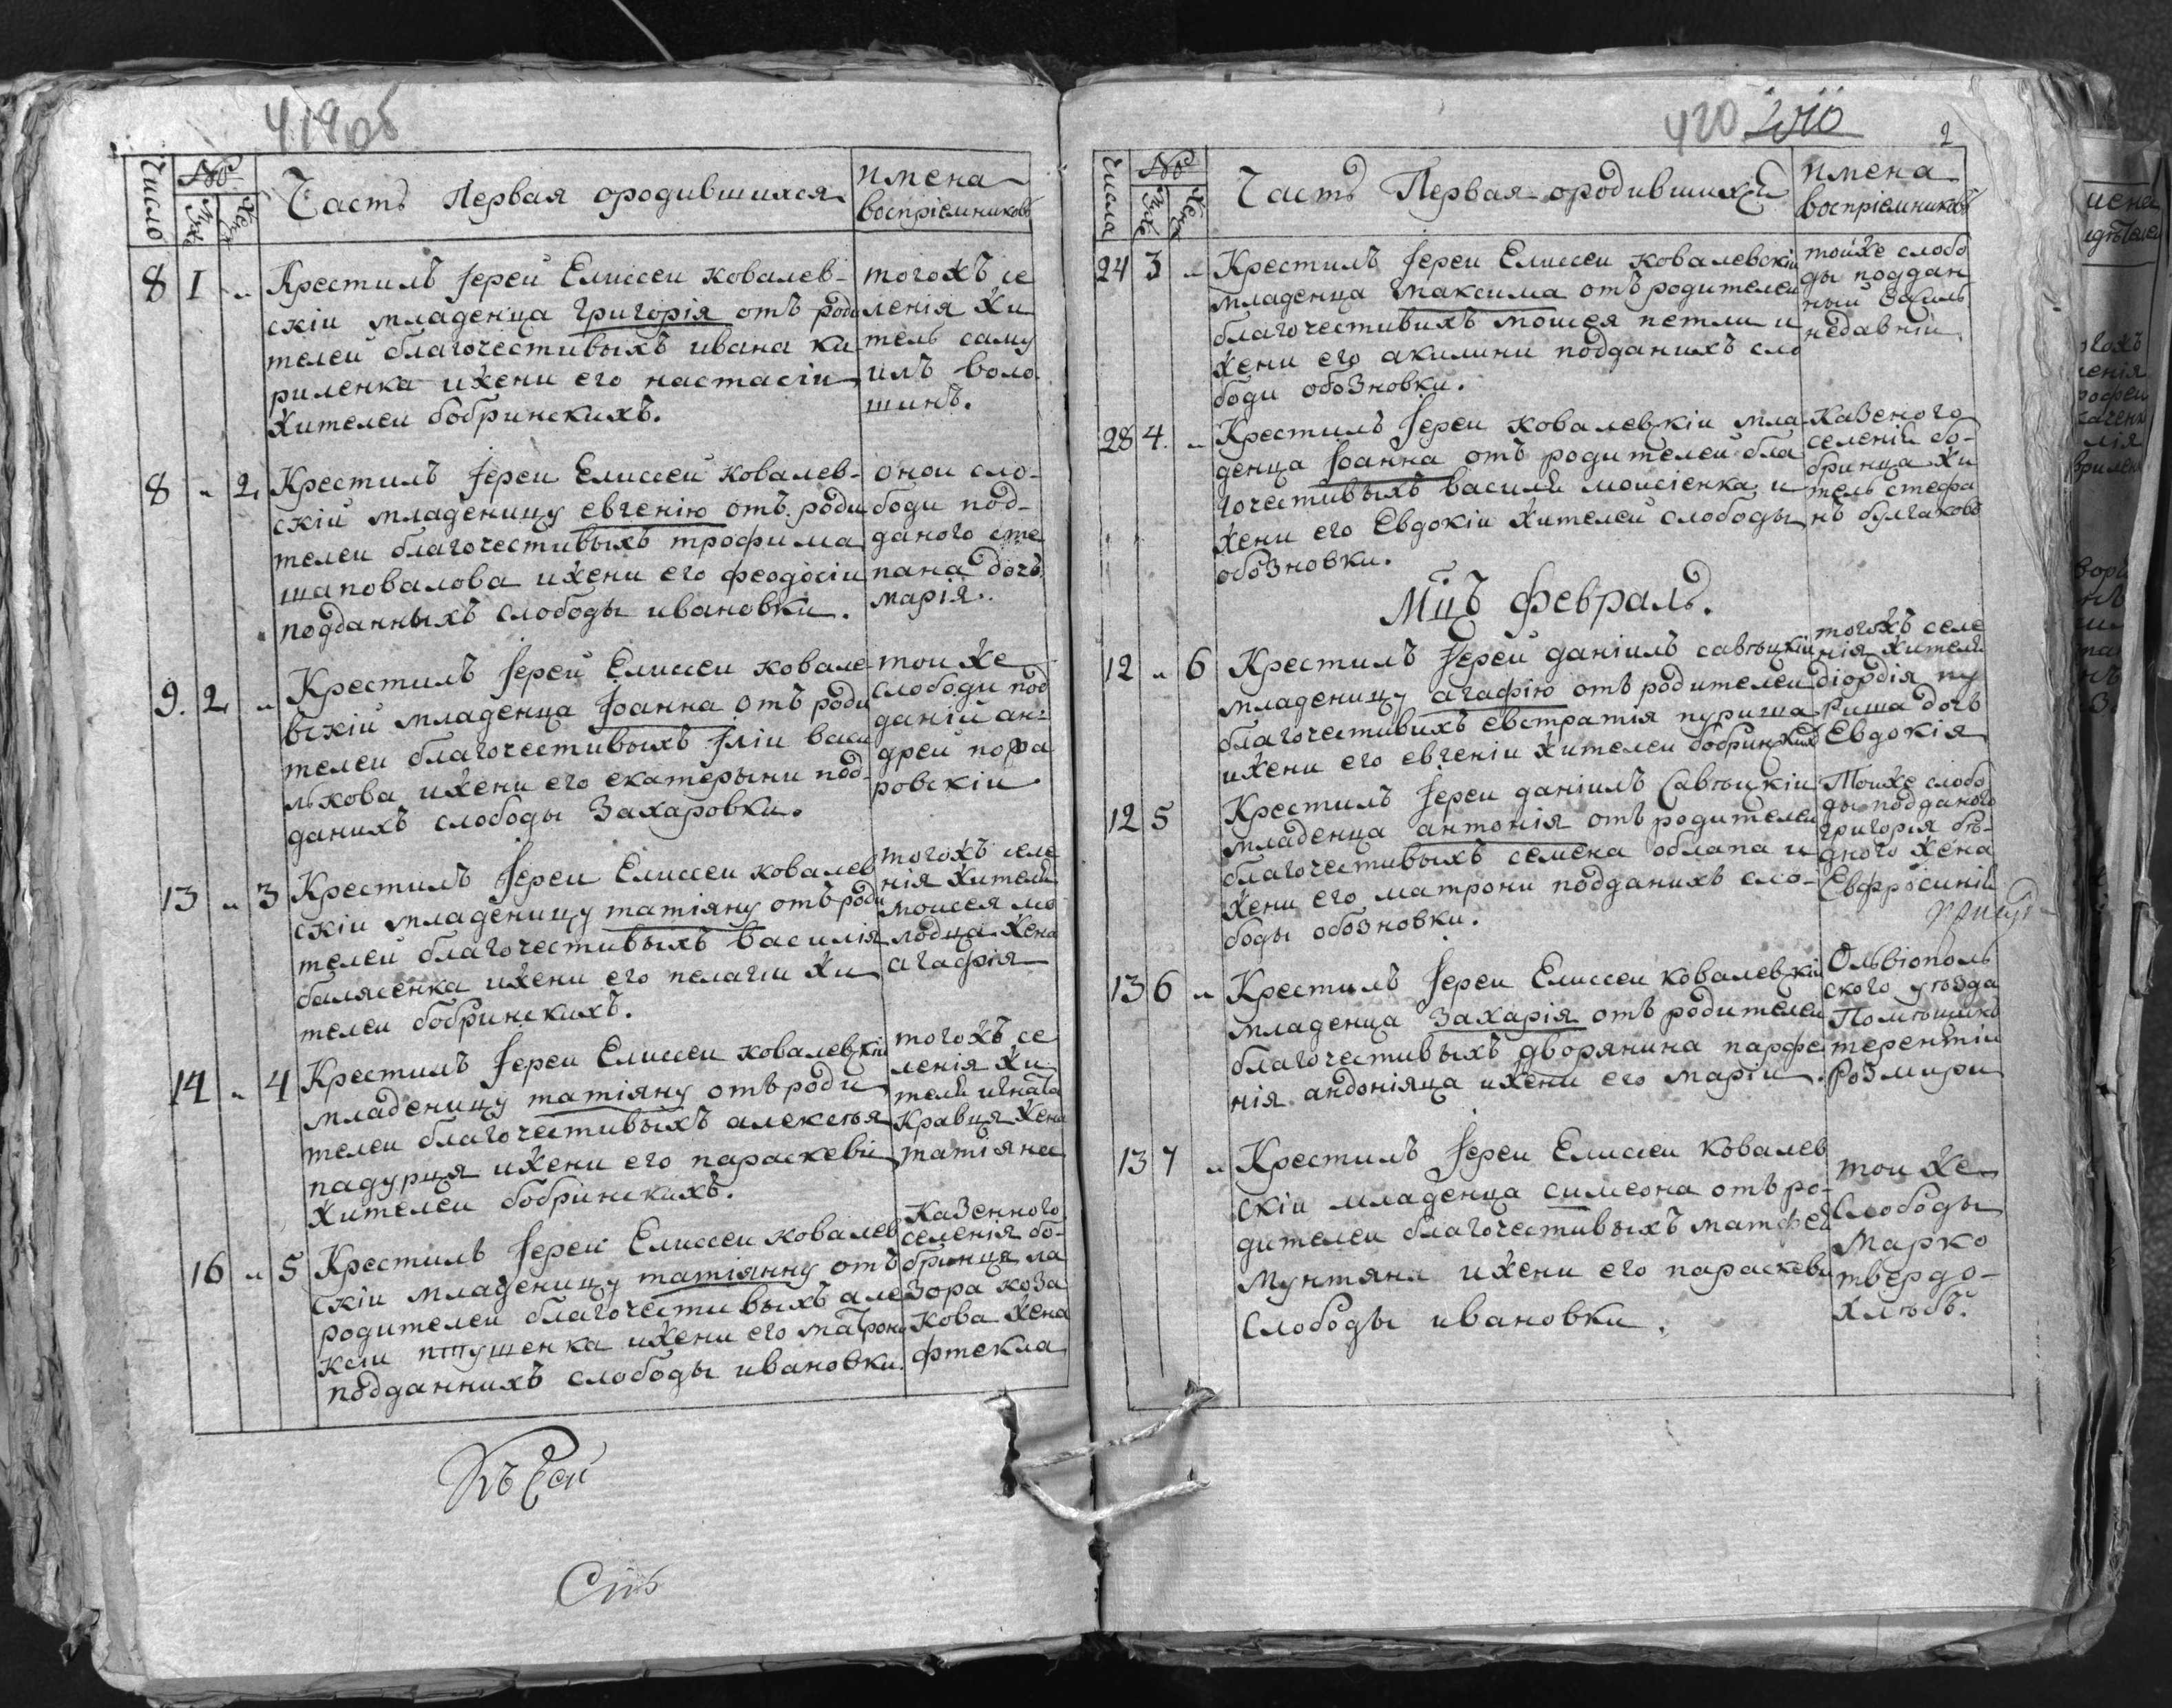 419об
Число
№
Муж
Жен
Часть Первая ородившихся
имена
воспріемниковъ
8 1 „ Крестилъ Іерей Елиссеи ковалев-
скіи младенца григорія отъ роди
телеи благочестивыхъ ивана ки
риленка ижени его настасіи
жителеи бобринскихъ.
тогожъ се
ленія жи
тель саму
илъ воло
шинъ.
8 „ 2 Крестилъ Іереи Елиссеи ковалев-
скій младеницу евгенію отъ роди
телеи благочестивыхъ трофима
шаповалова ижени его феодосіи
подданныхъ слободы ивановки.
онои сло-
боди под-
даного сте
пана дочь
марія.
9. 2 „ Крестилъ Іерей Елиссеи ковале
вскій младенца Іоанна отъ роди
телеи благочестивыхъ Іліи васи
лькова ижени его екатерыни под-
данихъ слободы Захаровки.
тои же
слободи под
даній ан
дреи пора
ровскіи
13 „ 3 Крестилъ Іереи Елиссеи ковалев
скіи младеницу татіяну отъ роди
телей благочестивыхъ василія
балясенка ижени его пелагіи жи
телеи бобринскихъ.
тогожъ селе
нія жителя
моисея мо
лодца жена
агафія
14 „ 4 Крестилъ Іереи Елиссеи ковалевскіи
младеницу татіяну отъ роди
телеи благочестивыхъ алексѣя
падурця ижени его параскевіи
жителеи бобринскихъ.
тогожъ се
ленія жи
теля игната
Кравця жена
татіяна
16 „ 5 Крестилъ Іереи Елиссеи ковалев
скіи младеницу татіянну отъ
родителеи благочестивыхъ але
ксіи птушенка ижени его матрони
подданнихъ слободы ивановки.
Казенного
селенія бо-
бринця ла
зора коза
кова жена
фтекла
Къ Сей
420
2
Числа
№
Муж
Жен
Часть Первая ородившихся
имена
воспріемниковъ
24 3 „ Крестилъ Іереи Елиссеи ковалевскіи
младенца максима отъ родителеи
благочестивихъ мошея петли и
жени его акилини подданихъ сло
боди обозновки.
тойже слобо
ды поддан
ный василь
недавніи
28 4. „ Крестилъ Іереи ковалевскіи мла-
денца Іоанна отъ родителей бла
гочестивыхъ василія моисіенка и
жени его Евдокіи жителей слободы
обозновки.
Казеного
селенія бо-
бринца жи
тель стефа
нъ булгаковъ
Мцъ февраль.
12 „ 6 Крестилъ Іереи даніилъ савѣцкіи
младеницу агафію отъ родителеи
благочестивихъ евстратія пуриша
ижени его евгеніи жителеи бобринскихъ
тогожъ селе
нія жителя
діордія пу
риша дочь
Евдокія
12 5 Крестилъ Іереи даніилъ Савѣцкіи
младенца антонія отъ родителеи
благочестивыхъ семена облапа и
жени его матрони подданихъ сло-
боды обозновки.
Тоиже слобо
ды подданого
григорія бѣ-
дного жена
Евфросинія
13 6 „ Крестилъ Іереи Елиссеи ковалевскіи
младенца Захарія отъ родителеи
благочестивыхъ дворянина парфе
нія андоніяца ижени его маріи.
Ольвіополь
ского уѣзда
Помѣщикъ
терентіи
Розмири
13 7 „ Крестилъ Іереи Елиссеи Ковалев
скіи младенца симеона отъ ро-
дителеи благочестивыхъ матфея
мунтяна ижени его параскевы
Слободы ивановки.
тои же
Слободы
Марко
твердо-
хлѣбъ.